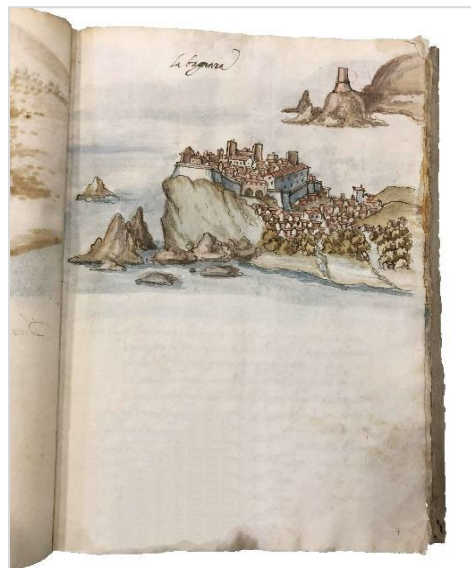 la bagnara